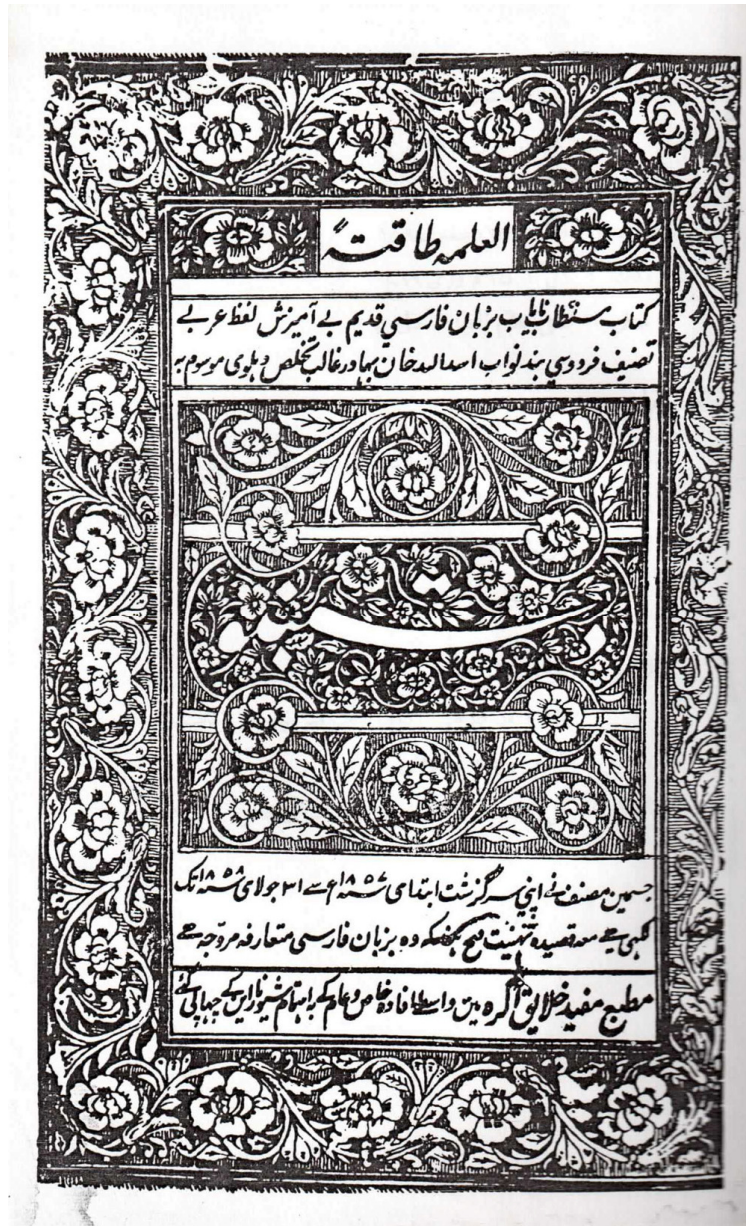 العلمہ طاقتہً
کتاب مستطاب نایاب بزبان فارسي قدیم بے آمیزش لفظ عربے
تصنیف فردوسي ہند نواب اسداللہ خان بہادر غالب تخلص دہلوی موسوم بہ
دستنبو
جسمین مصنف نے اپني سرگزشت ابتدای سنہ ۱۸۵۷ع سے ۳۱ جولای سنہ ۱۸۵۸ تک
لکہی ہے معہ قصیدہ تہنیت کہ وہ بزبان فارسی متعارفہ مروّجہ ہے
مطبع مفید خلایق آگرہ مین واسطے افادہ خاص و عام کے باہتمام شیونراین کے چہاپی گئے